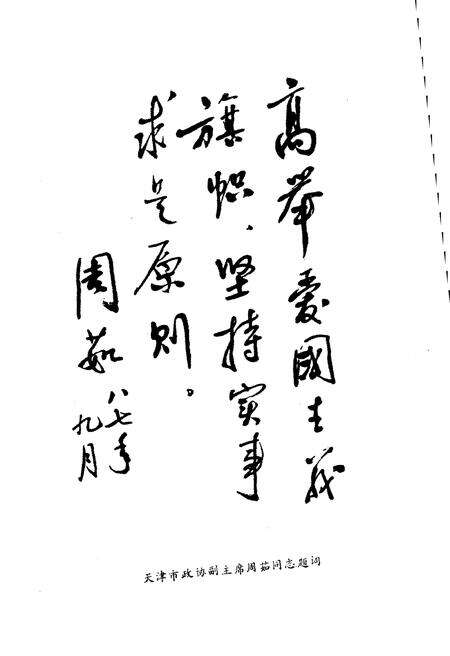 高举爱國主義
旗帜、坚持实事
求是原则。
周茹
八七年
九月
天津市政协副主席周茹同志题词